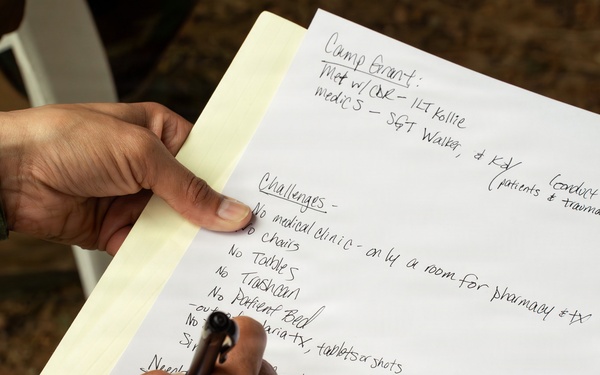 Camp Grant:
Met w/ CDR - 1LT Kollie
medics - SGT Walker, &
(conduct
(patients & trauma
Challenges -
No medical clinic - only a room for pharmacy & tx
No chairs
No Tables
No Trashcan
No Patient Bed
- out malaria tx, tablets or shots
No
Need